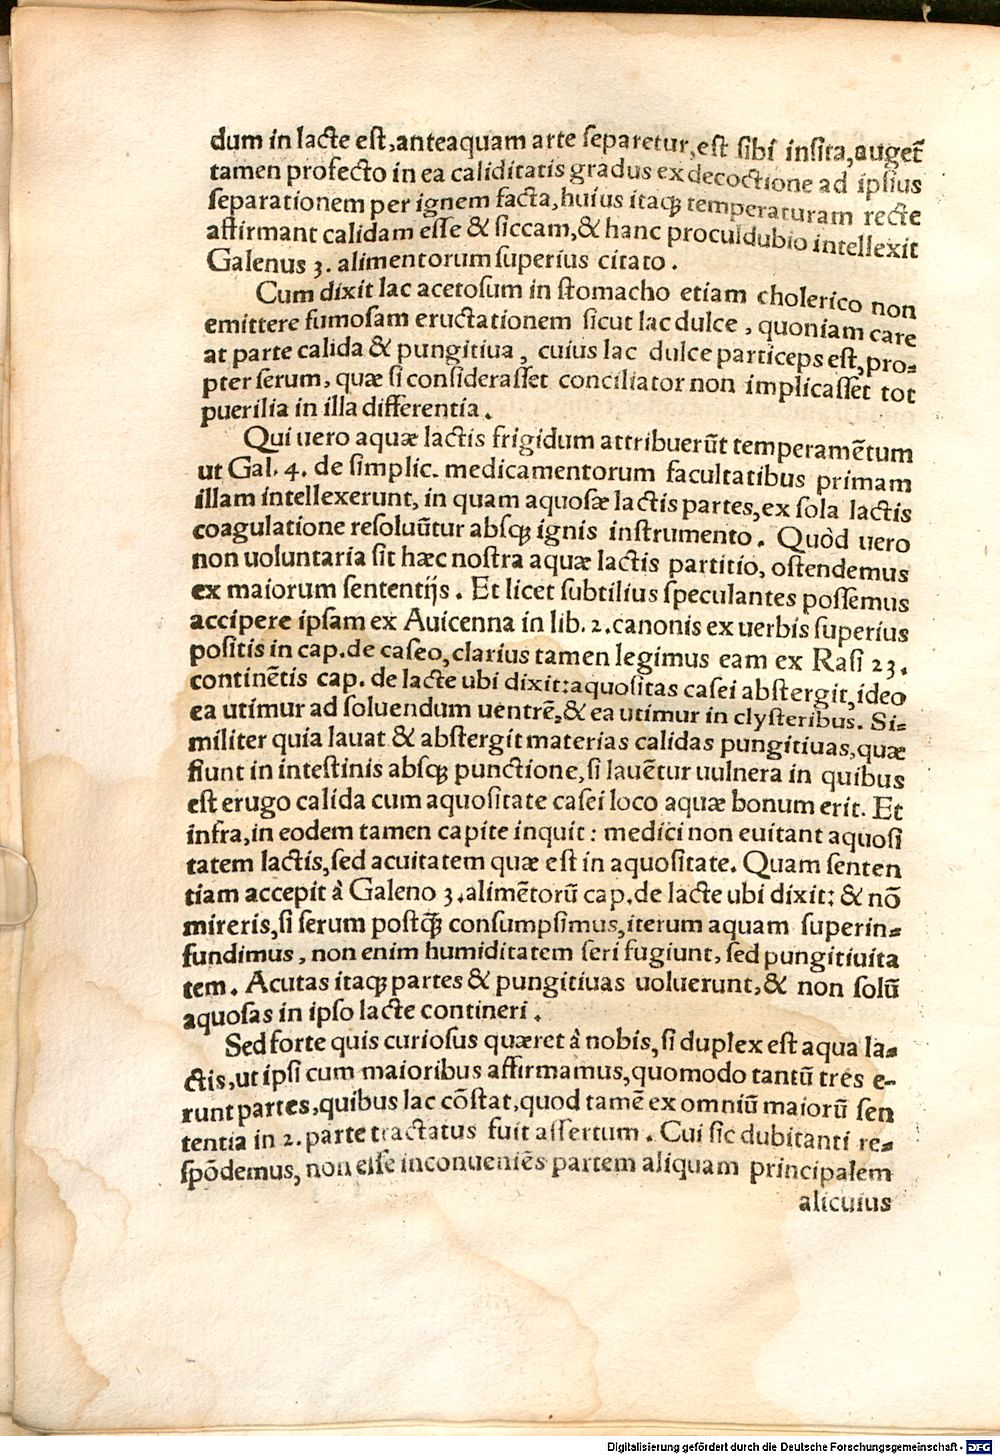 dum in lacte est,anteaquam arte separetur,est sibi insita,auget̃
tamen profecto in ea caliditatis gradus ex decoctione ad ipsius
separationem per ignem facta,huius itaqꝫ temperaturam recte
affirmant calidam esse & siccam,& hanc proculdubio intellexit
Galenus 3. alimentorum superius citato.
Cum dixit lac acetosum in stomacho etiam cholerico non
emittere fumosam eructationem sicut lac dulce, quoniam care
at parte calida & pungitiua, cuius lac dulce particeps est,pro-
pter serum, quæ si considerasset conciliator non implicasset tot
puerilia in illa differentia.
Qui uero aquæ lactis frigidum attribuerũt temperamẽtum
ut Gal. 4. de simplic. medicamentorum facultatibus primam
illam intellexerunt, in quam aquosæ lactis partes,ex sola lactis
coagulatione resoluũtur absqꝫ ignis instrumento. Quòd uero
non uoluntaria sit hæc nostra aquæ lactis partitio, ostendemus
ex maiorum sententijs. Et licet subtilius speculantes possemus
accipere ipsam ex Auicenna in lib. 2.canonis ex uerbis superius
positis in cap.de caseo,clarius tamen legimus eam ex Rasi 23.
continẽtis cap. de lacte ubi dixit:aquositas casei abstergit,ideo
ea utimur ad soluendum uentrẽ,& ea utimur in clysteribus. Si-
militer quia lauat & abstergit materias calidas pungitiuas,quæ
fiunt in intestinis absqꝫ punctione,si lauẽtur uulnera in quibus
est erugo calida cum aquositate casei loco aquæ bonum erit. Et
infra,in eodem tamen capite inquit: medici non euitant aquosi
tatem lactis,sed acuitatem quæ est in aquositate. Quam senten
tiam accepit à Galeno 3.alimẽtorũ cap.de lacte ubi dixit: & nõ
mireris,si serum postq̃ consumpsimus,iterum aquam superin-
fundimus, non enim humiditatem seri fugiunt, sed pungitiuita
tem. Acutas itaqꝫ partes & pungitiuas uoluerunt,& non solũ
aquosas in ipso lacte contineri.
Sed forte quis curiosus quæret à nobis, si duplex est aqua la-
ctis,ut ipsi cum maioribus affirmamus,quomodo tantũ tres e-
runt partes,quibus lac cõstat,quod tamẽ ex omniũ maiorũ sen
tentia in 2. parte tractatus fuit assertum. Cui sic dubitanti re-
spõdemus, non esse inconueniẽs partem aliquam principalem
alicuius
Digitalisierung gefördert durch die Deutsche Forschungsgemeinschaft - DFG